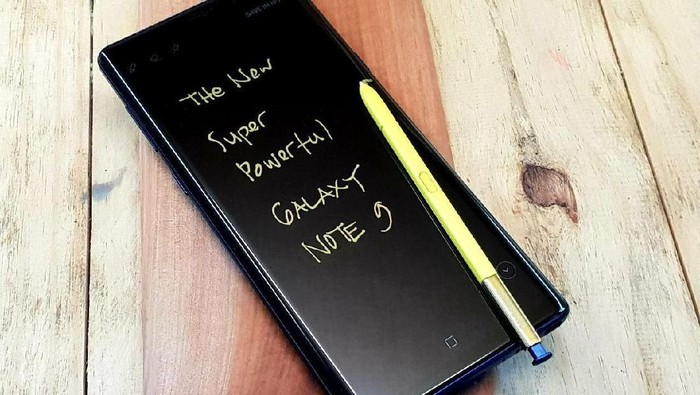 SAVE IN
THE New
Super
Powerful
GALAXY
NOTE 9